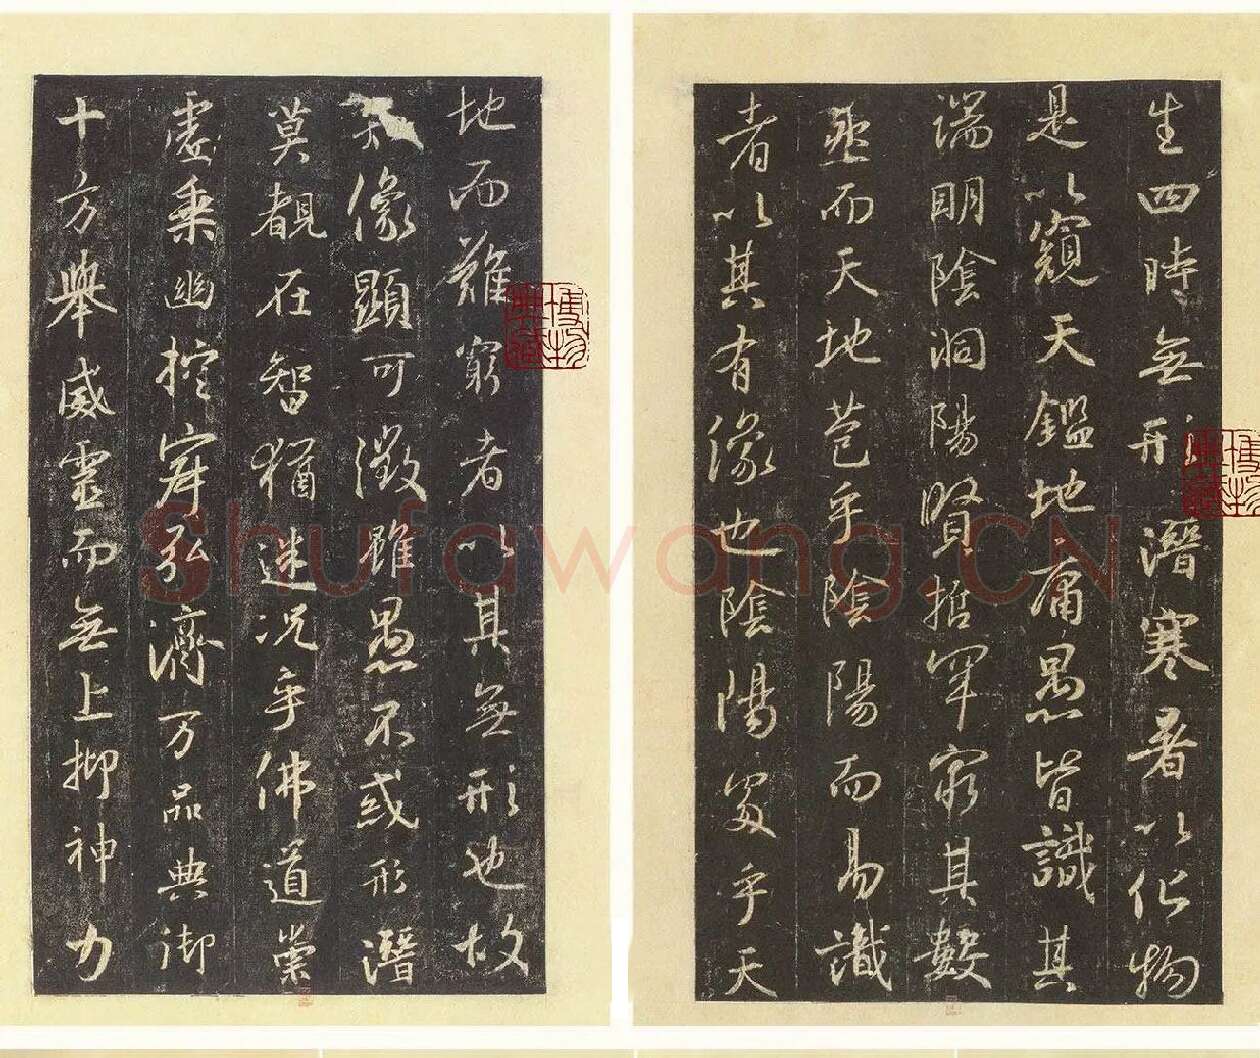 生四時無形潛寒暑以化物
是以窺天鑑地庸愚皆識其
端明陰洞陽賢哲罕窮其數
然而天地苞乎陰陽而易識
者以其有像也陰陽處乎天
地而難窮者以其無形也故
像顯可徵雖愚不惑形潛
莫覩在智猶迷況乎佛道崇
虛乘幽控寂弘濟万品典御
十方舉威靈而無上抑神力
Shufawang.CN